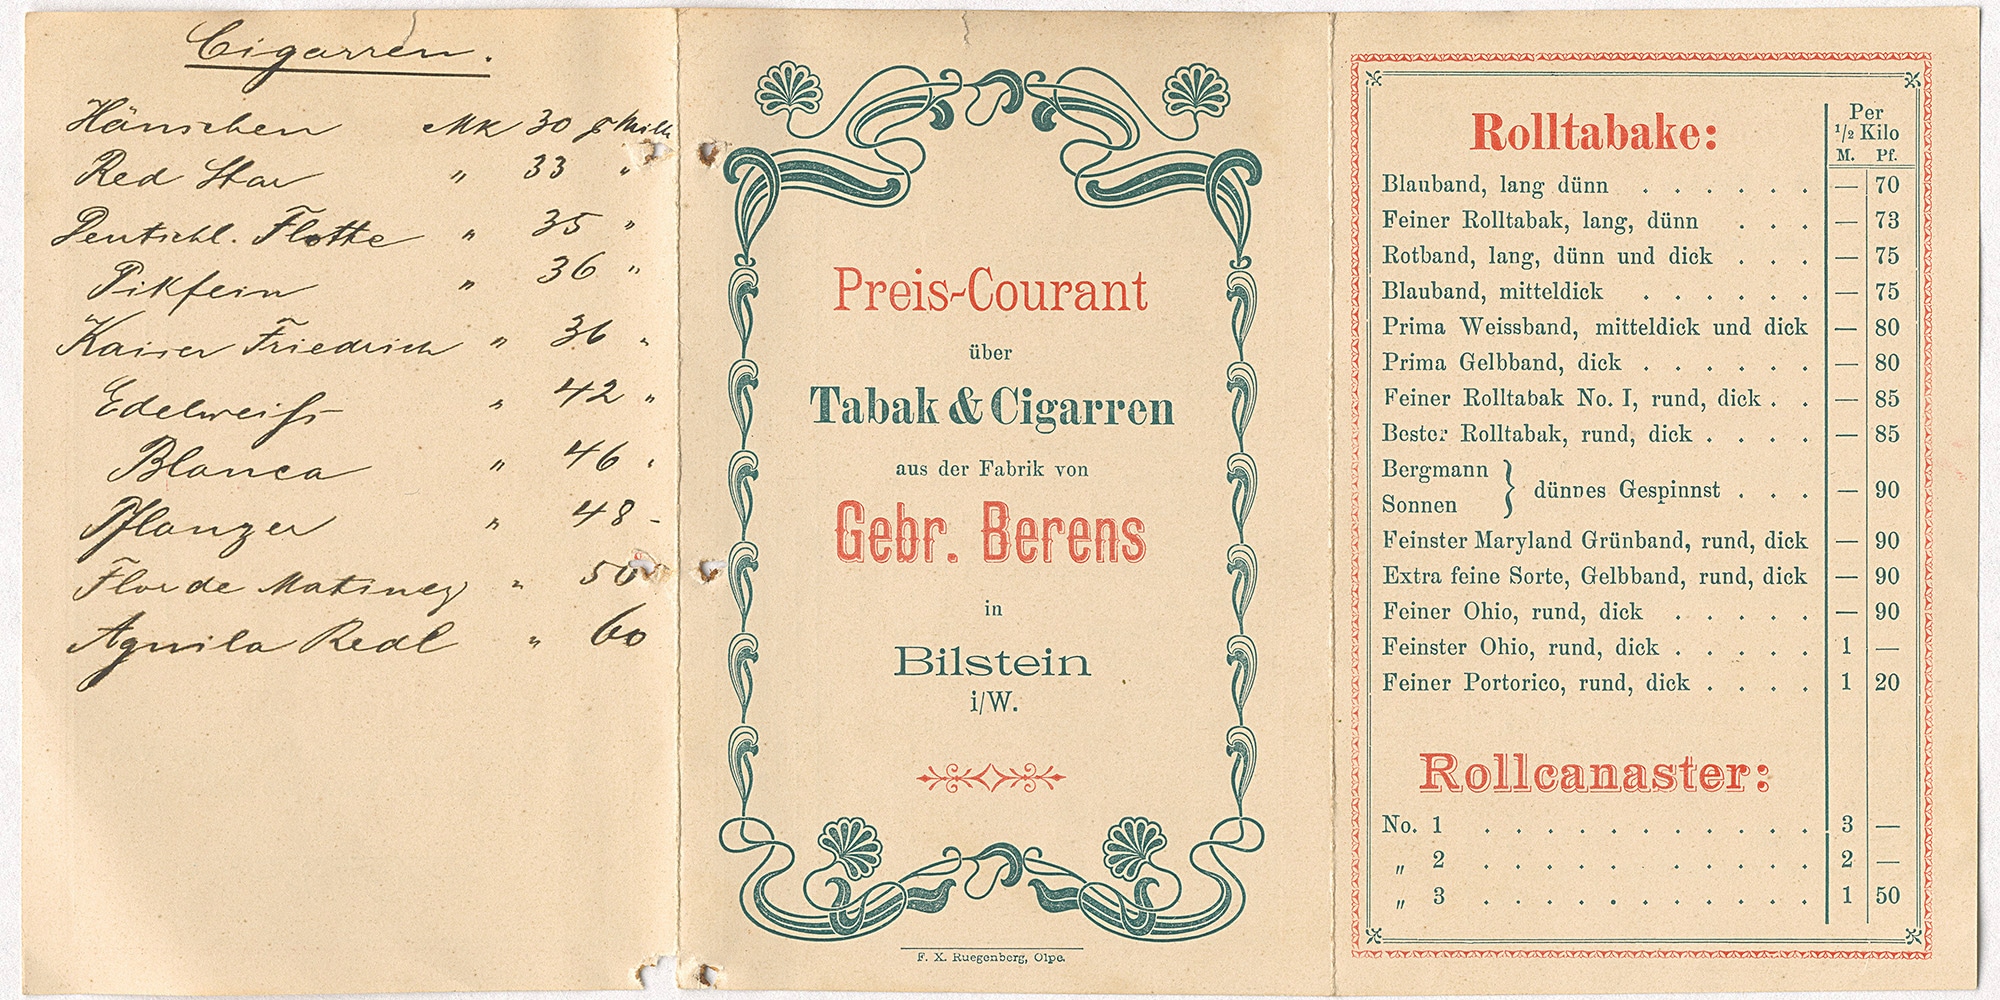 Cigarren.
Hänschen Mk 30 p Mille
Red Star " 33 "
Deutschl. Flotte " 35 "
Pikfein " 36 "
Kaiser Friedrich " 36 "
Edelweiß " 42 "
Blanca " 46 "
Pflanzer " 48 -
Flor de " 50
Aguila Real " 60
Preis-Courant
über
Tabak & Cigarren
aus der Fabrik von
Gebr. Berens
in
Bilstein
i/W.
F. X. Ruegenberg, Olpe.
Rolltabake:
Per
1/2 Kilo
M. Pf.
Blauband, lang dünn . . . . . . — 70
Feiner Rolltabak, lang, dünn . . . — 73
Rotband, lang, dünn und dick . . . — 75
Blauband, mitteldick . . . . . . — 75
Prima Weissband, mitteldick und dick — 80
Prima Gelbband, dick . . . . . . — 80
Feiner Rolltabak No. I, rund, dick . . — 85
Bester Rolltabak, rund, dick . . . . — 85
Bergmann
Sonnen } dünnes Gespinnst . . . — 90
Feinster Maryland Grünband, rund, dick — 90
Extra feine Sorte, Gelbband, rund, dick — 90
Feiner Ohio, rund, dick . . . . . — 90
Feinster Ohio, rund, dick . . . . . 1 —
Feiner Portorico, rund, dick . . . . 1 20
Rollcanaster:
No. 1 . . . . . . . . . . . 3 —
" 2 . . . . . . . . . . 2 —
" 3 . . . . . . . . . . . 1 50